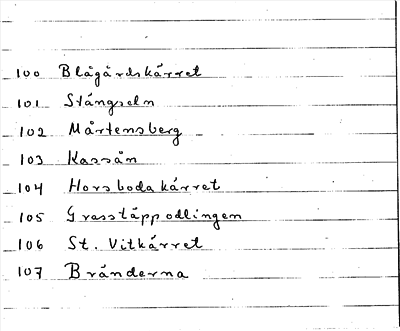 100 Blågårdskärret
101 Stångseln
102 Mårtensberg
103 Kassån
104 Horsbodakärret
105 Grasstäppodlingen
106 St. Vitkärret
107 Bränderna